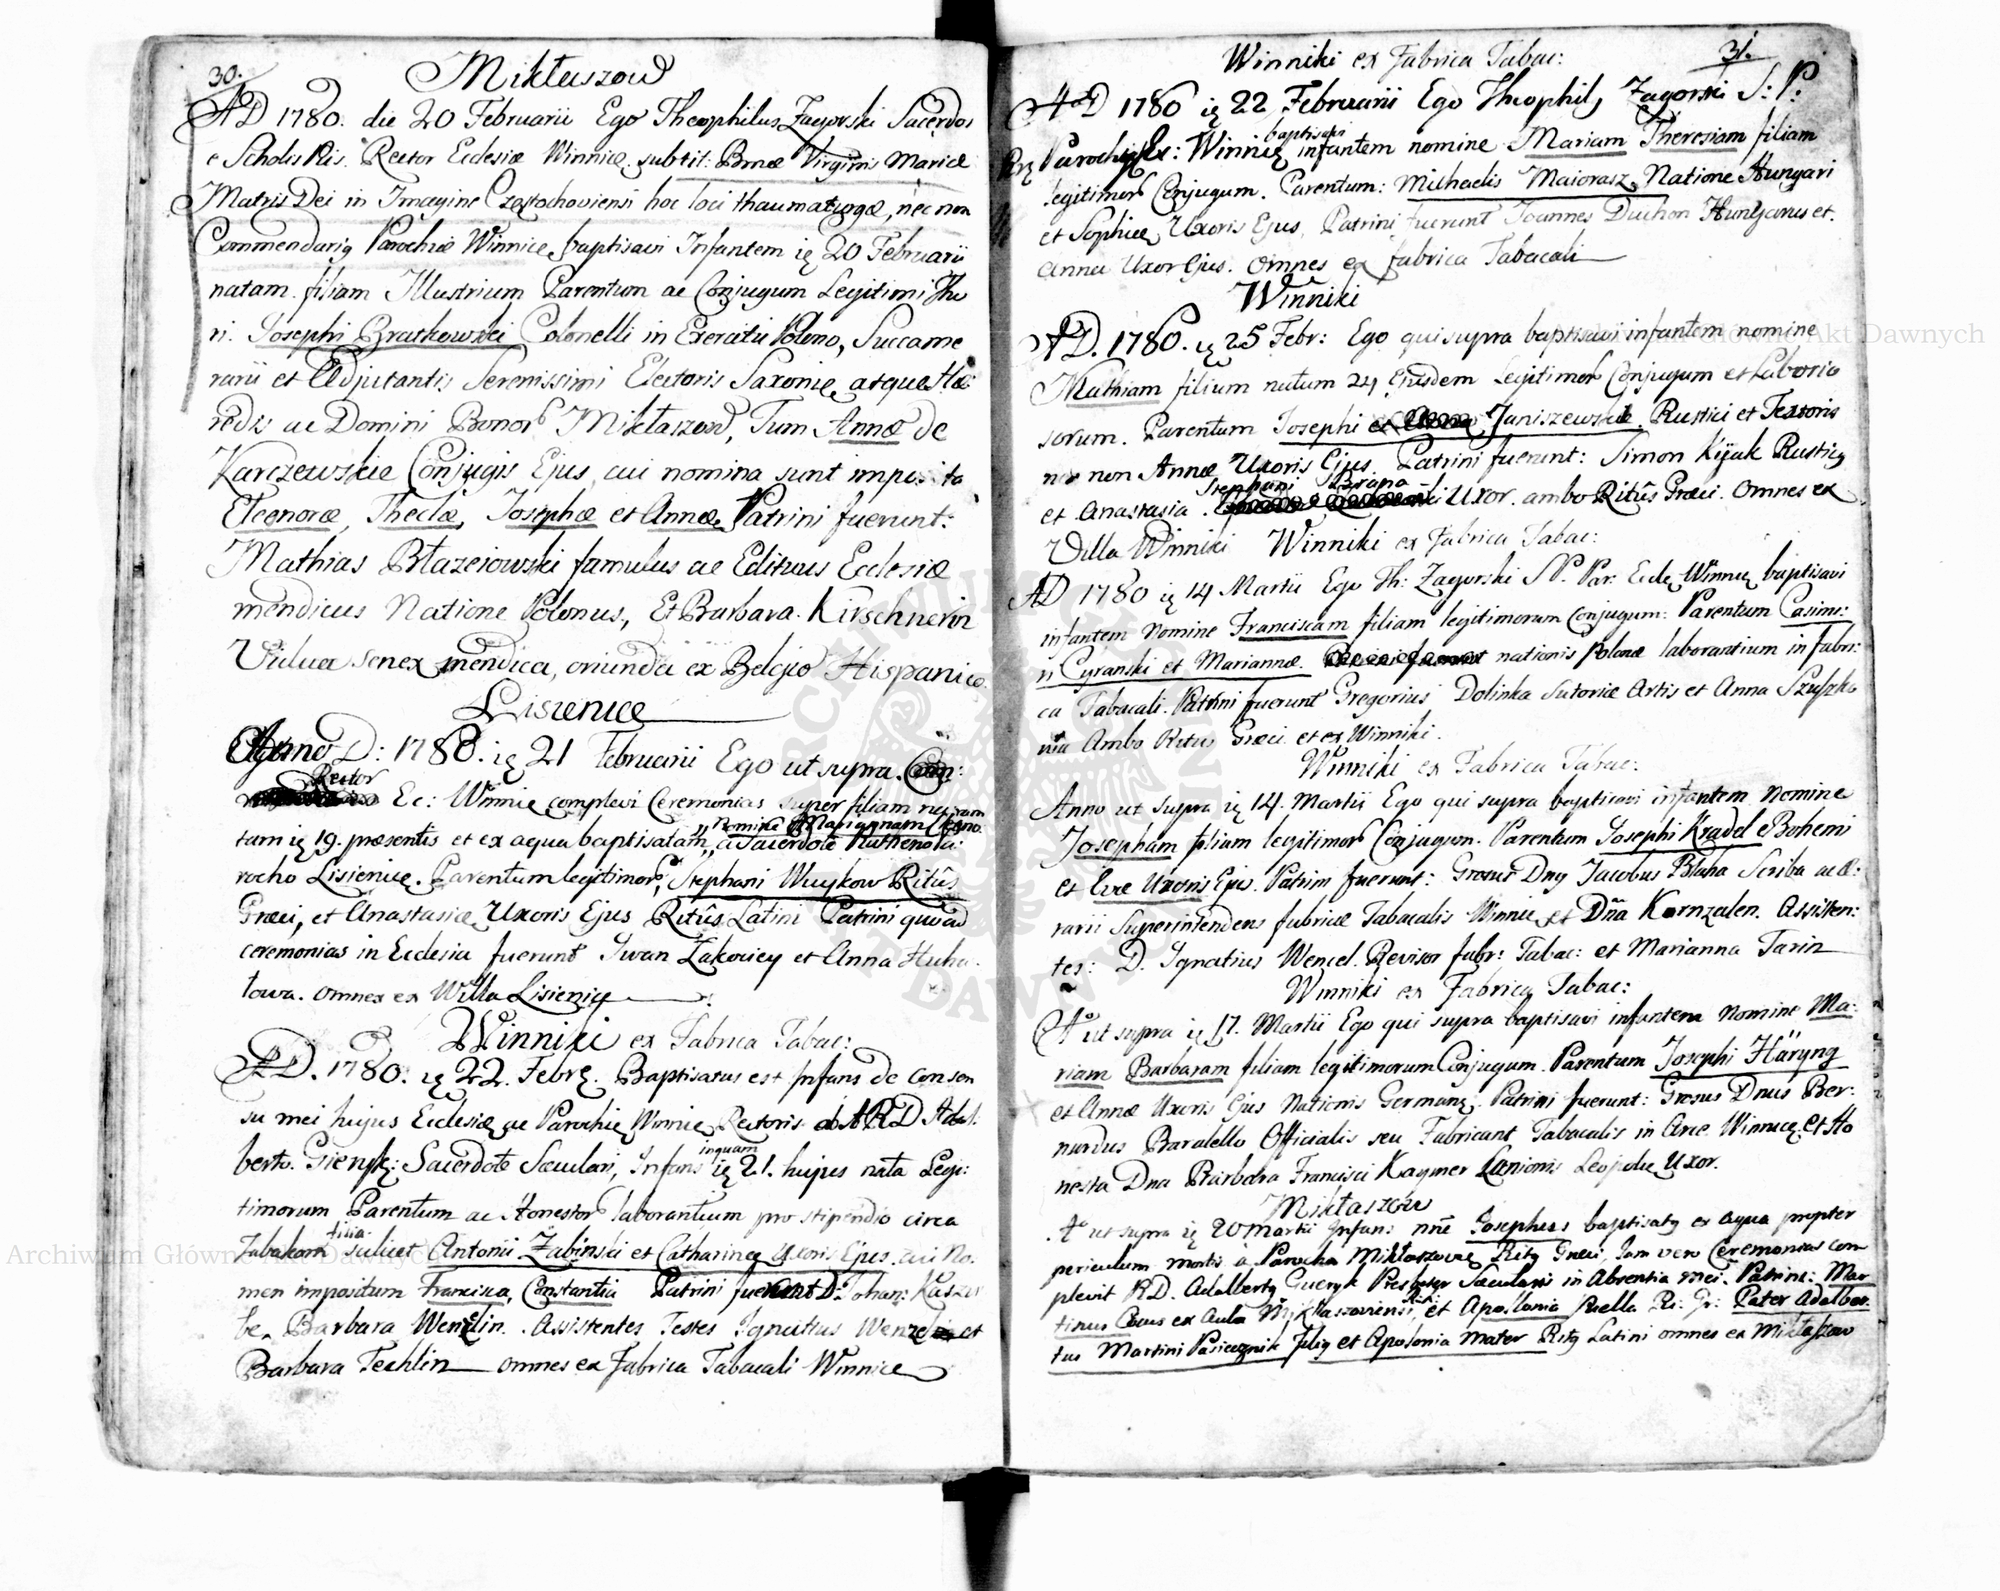 30.
Mikłaszow
AD 1780. die 20 Februarii Ego Theophilus Zagorski Sacerdos
e Scholis Piis. Rector Ecclesiæ Winnicæ subtit: Bmæ Virginis Mariæ
Matris Dei in Imagine Częstochoviensi hoc loci thaumaturgæ, nec non
Commendariꝰ Parochiæ Winnice, baptisavi Infantem ię 20 Februarii
natam. filiam Illustrium Parentum ac Conjugum Legitimi Tho
ri. Josephi Bratkowski Colonelli in Exercitu Polono, Succame
rarii et Adjutantis Serenissimi Electoris Saxoniæ, atque Hæ:
redis ac Domini Bonor Mikłaszow, Tum Annæ de
Karczewskie Conjugis Ejus, cui nomina sunt imposita
Eleonoræ, Theclæ, Josephæ et Annæ. Patrini fuerunt:
Mathias Błazeiowski famulus ac Edituus Ecclesiæ
mendicus Natione Polonus, Et Barbara Kirschnerin
Vidua senex mendica, oriunda ex Belgio Hispanico.
Lisienice
Anno D: 1780. ię 21 Februarii Ego ut supra.
Rector
Ec: Winnic complevi Ceremonias super filiam
tam ię 19. præsentis et ex aqua baptisatam, nomine Mariannam
a Sacerdote Rutheno Pa:
rocho Lisienicę. Parentum legitimor, Stephani Wuykow Ritûs
Græci, et Anastasiæ Uxoris Ejus Ritûs Latini Patrini quoad
ceremonias in Ecclesia fuerunt Iwan Zakowiey et Anna Huha
towa. omnes ex Willa Lisienicę
Winniki ex Fabrica Tabac:
AD. 1780. ię 22. Febrę. Baptisatus est Infans de Consen
su mei hujus Ecclesiæ ac Parochię Winnię Rectoris ab ARD Adal
berto Gieryk: Sacerdote Sæculari, Infans inquam ię 21. hujus nata Legi:
timorum Parentum ac Honestor laborantium pro stipendio circa
Tabakam filia scilicet Antonii Zabinski et Catharinæ Uxoris Ejus. cui No:
men impositum Francisca, Constantia Patrini fuerunt D: Johan: Kaszu
be, Barbara Wenzlin. Assistentes Testes Ignatius Wenzel et
Barbara Techlin omnes ex fabrica Tabacali Winnice
31.
Winniki ex Fabrica Tabac:
AD 1780 ię 22 Februarii Ego Theophilꝰ Zagorski S: P:
Parochię Ec: Winnię baptisavi infantem nomine Mariam Theresiam filiam
legitimor Conjugum. Parentum: Michaelis Maiorasz Natione Hungari
et Sophiæ Uxoris Ejus, Patrini fuerunt Joannes Duchon Hungarus et.
Anna Uxor Ejus. Omnes ex fabrica Tabacali
Winniki
AD. 1780. ię 25 Febr: Ego qui supra baptisavi infantem nomine
Mathiam filium natum 24 Ejusdem Legitimor Conjugum et Laborio
sorum. Parentum Josephi Janiszewski. Rustici et Textoris
nec non Annæ Uxoris Ejus. Patrini fuerunt: Simon Kijak Rusticꝰ
et Anastasia Stephani Uxor. ambo Ritûs Græci. Omnes ex
Villa Winniki Winniki ex Fabrica Tabac:
AD 1780 ię 14 Martii Ego Th: Zagorski SP. Par. Eccłę Winnię baptisavi
infantem Nomine Franciscam filiam legitimorum Conjugum: Parentum Casimi:
ri Cyranski et Mariannæ. nationis Polonæ laborantium in fabri:
ca Tabacali. Patrini fuerunt Gregorius Dolinka Sutoriæ Artis et Anna
Ambo Ritus Græci et ex Winniki.
Winniki ex Fabrica Tabac:
Anno ut Supra ię 14. Martii Ego qui supra baptisavi infantem Nomine
Josepham filiam legitimor Conjugum. Parentum Josephi Kradel e Bohemi
et Evæ Uxoris Ejus. Patrini fuerunt: Grosus Dnꝰ Jacobus Blaha Scriba ac Æ:
rarii Superintendens fabricæ Tabacalis Winnic et Dña Kornzalen. Assisten:
tes: D. Ignatius Wencel. Revisor fabr: Tabac: et Marianna Tarin
Winniki ex Fabrica Tabac:
Aº ut supra ię 17. Martii Ego qui supra baptisavi infantem Nomine Ma:
riam Barbaram filiam legitimorum Conjugum. Parentum Josephi Häryng
et Annæ Uxoris Ejus Nationis Germanę. Patrini fuerunt: Grosus Dnus Ber:
nardus Baratello Officialis seu Fabricant Tabacalis in Arce Winnicę. Et Ho
nesta Dna Barbara Francisci Kaymer Lanionis Leopolię Uxor.
Mikłaszow
Aº ut supra ię 20 Martii Infans nñe Josephus baptisatꝰ ex aqua propter
periculum mortis à Parocho Mikłaszovię Ritꝰ Græci, Jam vero Ceremonias com
plevit RD. Adalbertꝰ Gieryk Presbyter Sæcularis in Absentia mei. Patrini: Mar
tinus Cocus ex Aula Mikłaszoviensi, et Apollonia Puella Ri: Gr: Pater Adalber
tus Martini Pasiecznik filiꝰ et Apolonia Mater Ritꝰ Latini omnes ex Mikłaszow
Archiwum Główne Akt Dawnych